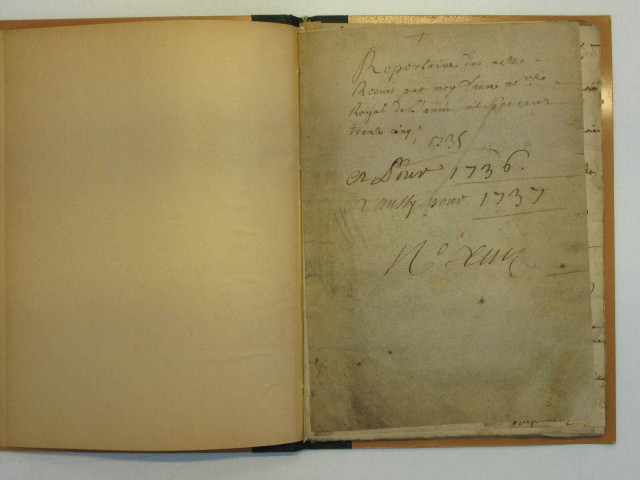 Repertoire des actes
Receus par moy no.re
Royal de l'année mil sept cent
trente cinq
1735
et Pour 1736.
et aussy pour 1737
N° XIIII